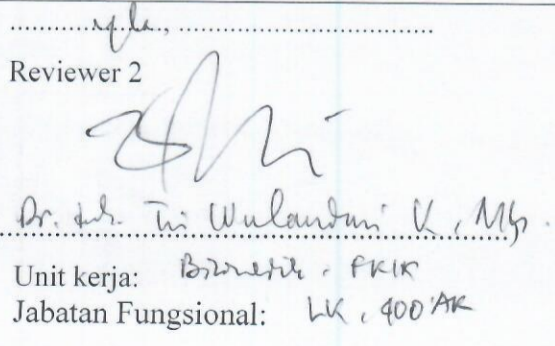 Reviewer 2
Dr. Tri Wulandari K, M
Unit kerja: Biomedik, FKIK
Jabatan Fungsional: LK, 400 AK